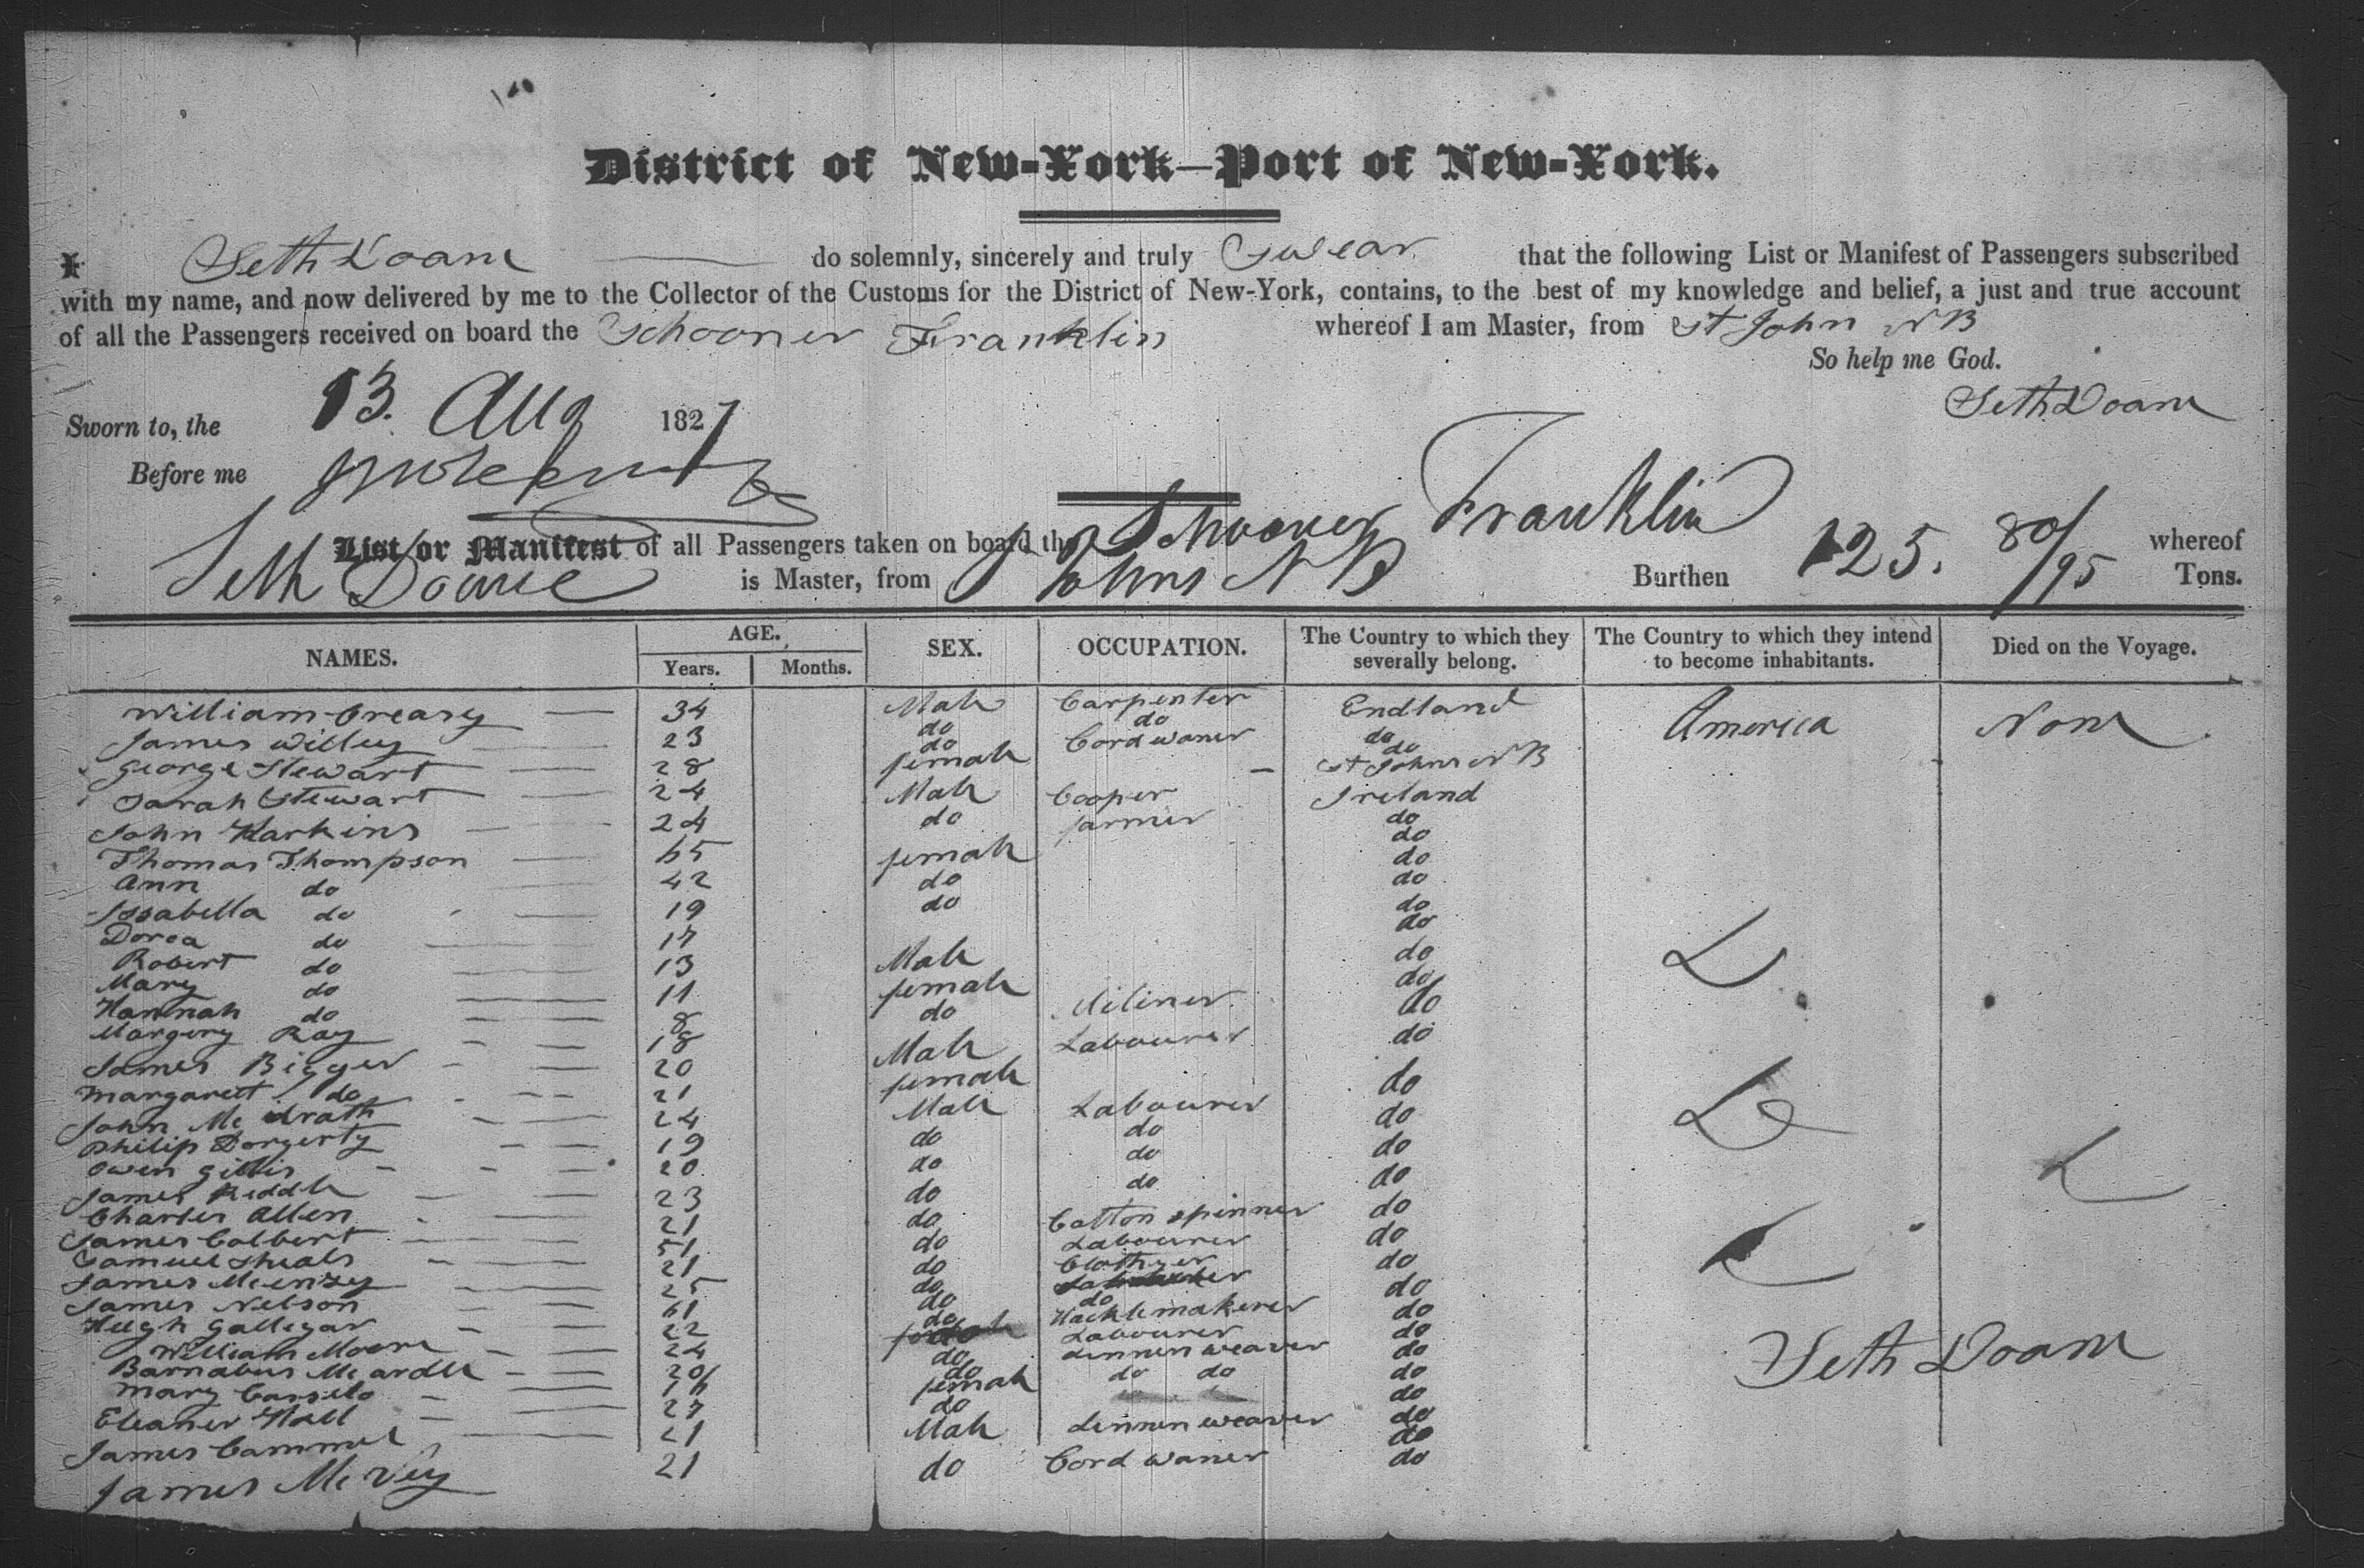 District of New-York—Port of New-York.
I Seth Doane do solemnly, sincerely and truly Swear that the following List or Manifest of Passengers subscribed
with my name, and now delivered by me to the Collector of the Customs for the District of New-York, contains, to the best of my knowledge and belief, a just and true account
of all the Passengers received on board the Schooner Franklin whereof I am Master, from St John NB
So help me God.
Seth Doane
Sworn to, the 13. Aug 1827
Before me
List or Manifest of all Passengers taken on board the Schooner Franklin whereof
Seth Doane is Master, from St Johns NB Burthen 125. 80/95 Tons.
NAMES. AGE. Years. Months. SEX. OCCUPATION. The Country to which they severally belong. The Country to which they intend to become inhabitants. Died on the Voyage.
William Creasy 34 Male Carpenter Endland America None
James Willey 23 do do do
George Stewart 28 do Cordwaner do
Sarah Stewart 24 female — St Johns NB
John Harkins 24 Male Cooper Ireland
Thomas Thompson 65 do farmer do
Ann do 42 female do
Issabella do 19 do do
Dorca do 17 do do
Robert do 13 Male do
Mary do 11 female do
Hannah do 8 do do
Margery Ray 18 Miliner do
James Bigger 20 Male Labourer do
Margarett do 21 female do
John Mc Grath 24 Male Labourer do
Philip Dorgerty 19 do do do
Owen Gillis 20 do do do
James Riddle 23 do do do
Charles Allen 21 do Cotton spinner do
James Colbert 51 do Labourer do
Samuel Sheals 21 do Clothyer do
James Mcenzey 25 do do
James Nelson 61 do do do
Hugh Gallegar 22 do Hacklemakerer do
William Moore 24 do Labourer do
Barnabus Mc ardle 20 do Linnen weaver do
Mary Cassilo do do do
Eleaner Hall 27 female do
James Cammel 21 Male Linnen weaver do
James Mc Vey 21 do Cord waner do
Seth Doane